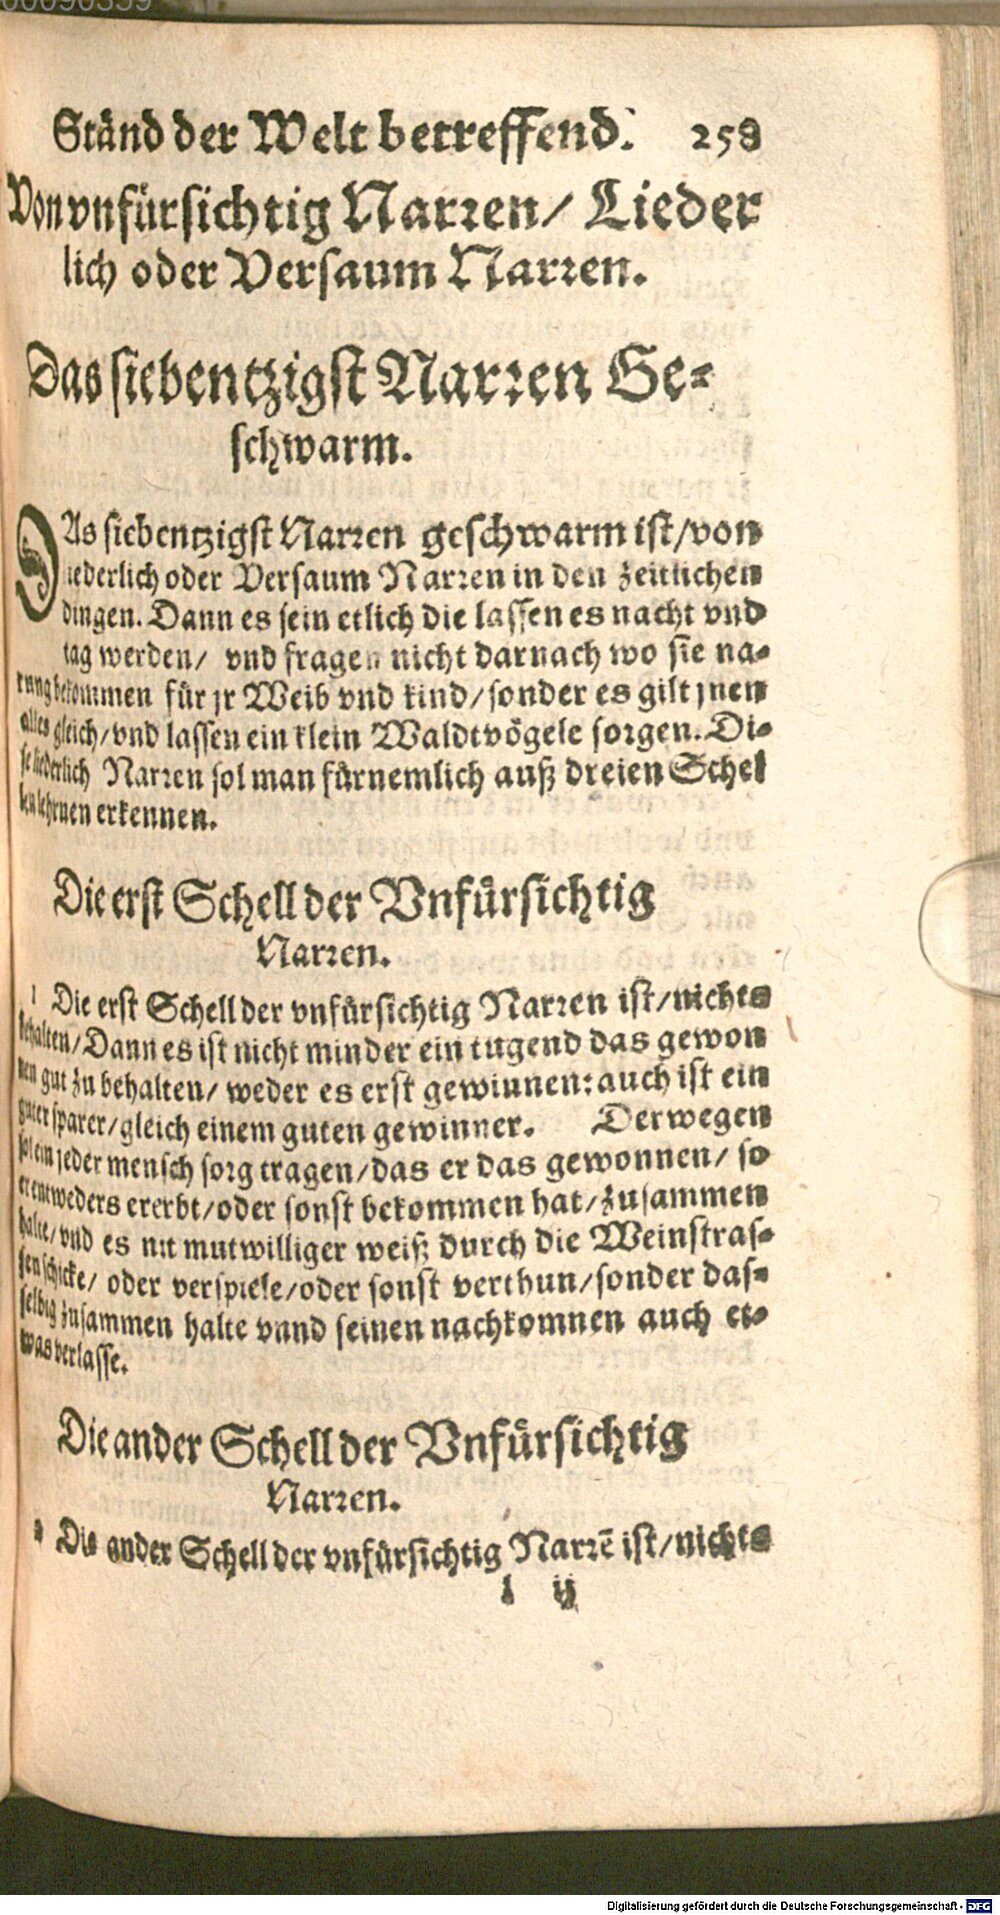 00090359
Ständ der Welt betreffend. 258
Von vnfürsichtig Narren/ Lieder
lich oder Versaum Narren.
Das siebentzigst Narren Ge-
schwarm.
DAs siebentzigst Narren geschwarm ist/von
liederlich oder Versaum Narren in den zeitlichen
dingen. Dann es sein etlich die lassen es nacht vnd
tag werden/ vnd fragen nicht darnach wo sie na-
rung bekommen für jr Weib vnd kind/sonder es gilt jnen
alles gleich/vnd lassen ein klein Waldtvögele sorgen. Di-
se liederlich Narren sol man fürnemlich auß dreien Schel
len lehrnen erkennen.
Die erst Schell der Vnfürsichtig
Narren.
1 Die erst Schell der vnfürsichtig Narren ist/nichts
behalten/Dann es ist nicht minder ein tugend das gewon
nen gut zu behalten/ weder es erst gewinnen: auch ist ein
guter sparer/gleich einem guten gewinner. Derwegen
sol ein jeder mensch sorg tragen/das er das gewonnen/ so
er entweders ererbt/oder sonst bekommen hat/zusammen
halte/vnd es nit mutwilliger weiß durch die Weinstras-
sen schicke/ oder verspiele/oder sonst verthun/sonder das-
selbig zusammen halte vand seinen nachkomnen auch et-
was verlasse.
Die ander Schell der Vnfürsichtig
Narren.
2 Die ander Schell der vnfürsichtig Narrē ist/nichts
l ij
Digitalisierung gefördert durch die Deutsche Forschungsgemeinschaft - DFG